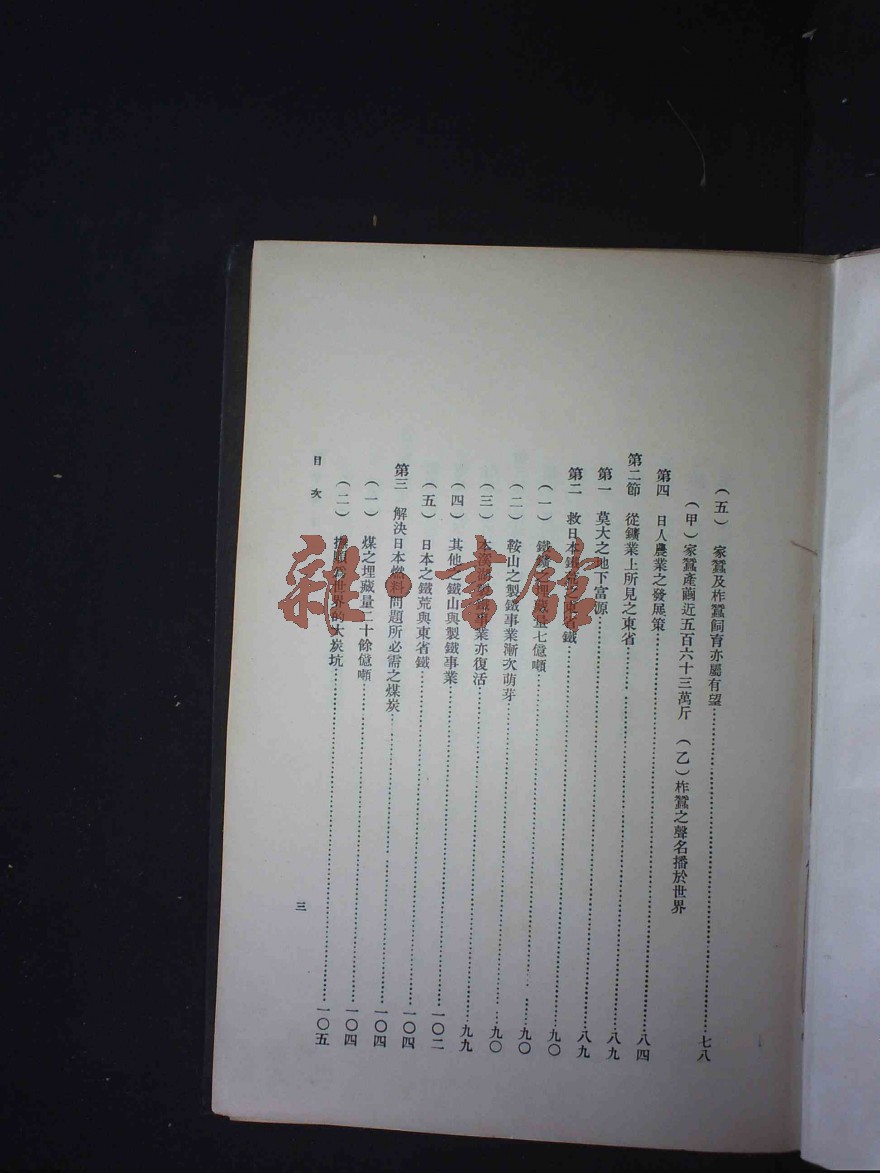 (五) 家蠶及柞蠶飼育亦屬有望……七八
(甲)家蠶產繭近五百六十三萬斤 (乙)柞蠶之聲名播於世界
第四 日人農業之發展策……八四
第二節 從鑛業上所見之東省……八九
第一 莫大之地下富源……八九
第二 救日本鐵荒之東省鐵……九〇
(一) 鐵鑛之埋藏量七億噸……九〇
(二) 鞍山之製鐵事業漸次萌芽……九〇
(三) 本溪湖製鐵事業亦復活……九九
(四) 其他之鐵山與製鐵事業……一〇二
(五) 日本之鐵荒與東省鐵……一〇四
第三 解決日本燃料問題所必需之煤炭……一〇四
(一) 煤之埋藏量二十餘億噸……一〇四
(二) 撫順為世界的大炭坑……一〇五
目次
三
雜·書館